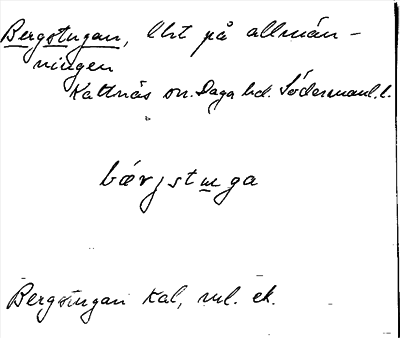 Bergstugan, Utt på allmän-
ningen
Kattnäs sn. Daga hd. Södermanl. l.
bærjstuga
Bergstugan kal, ek.